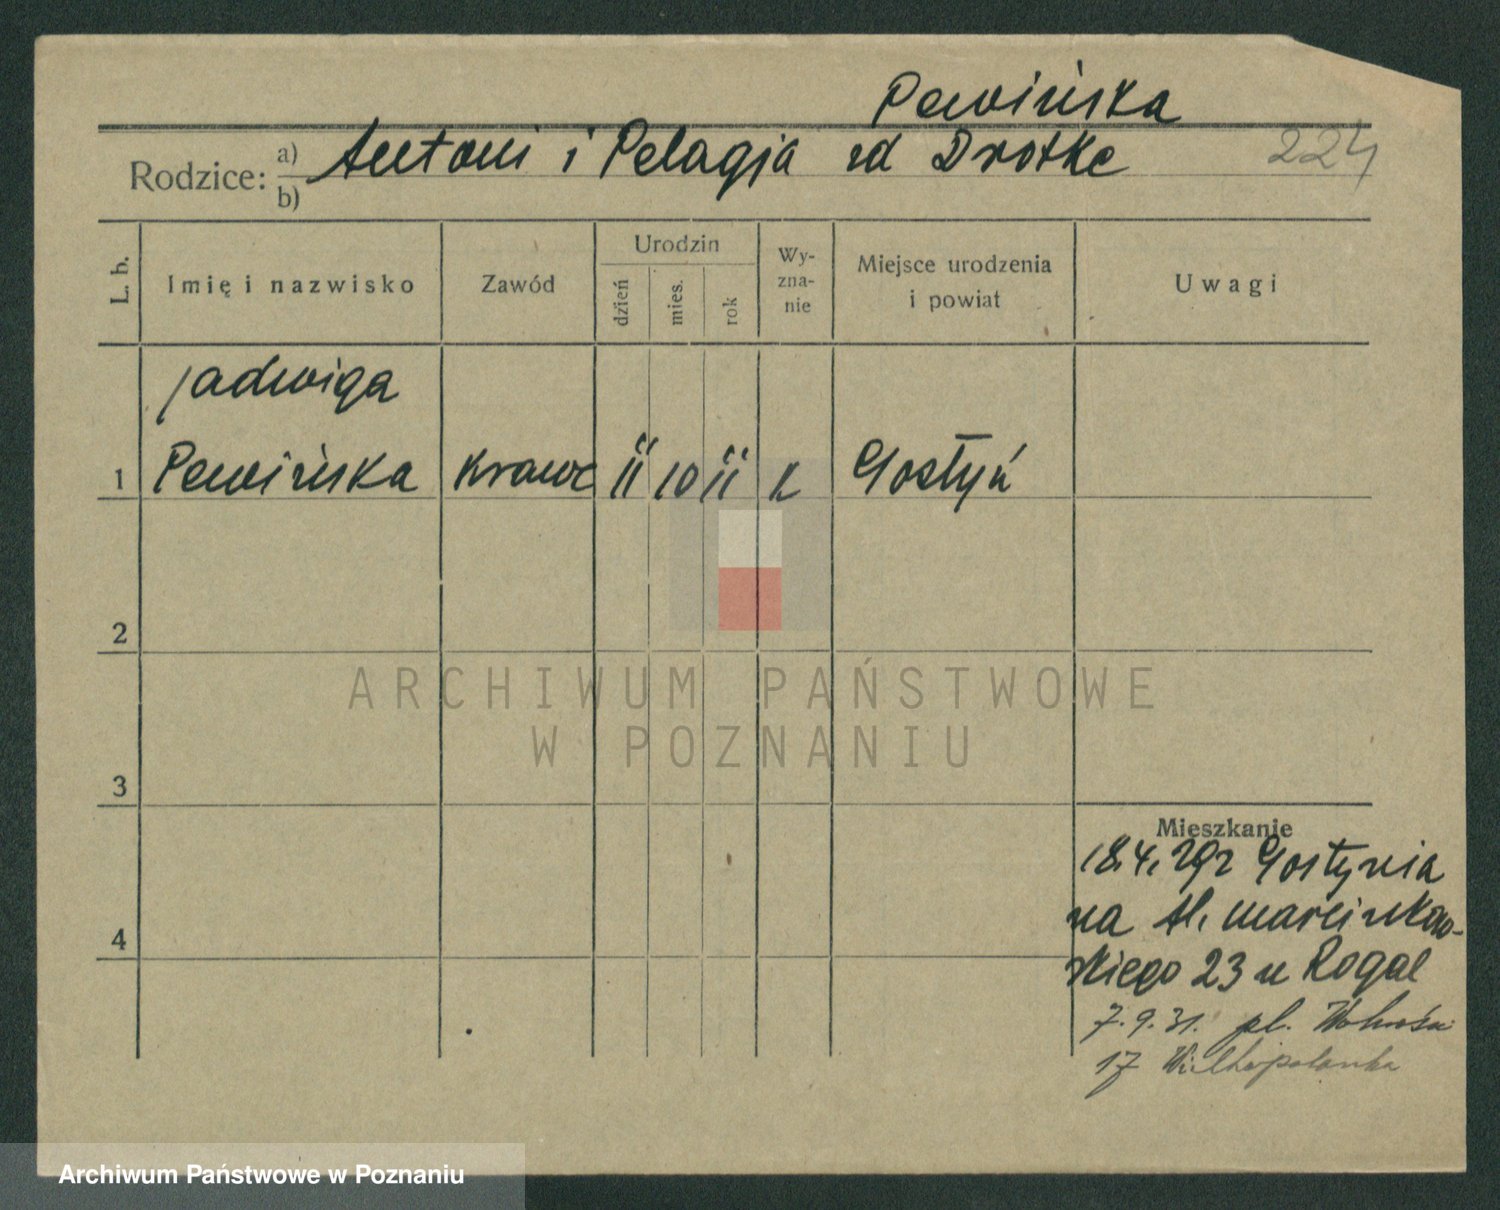 Pewińska
Rodzice: a) b) Antoni i Pelagja zd Drotke 224
L. b. Imię i nazwisko Zawód Urodzin dzień mies. rok Wy-zna-nie Miejsce urodzenia i powiat Uwagi
Jadwiga
1 Pewińska krawc 11 10 11 k Gostyń
2
ARCHIWUM PAŃSTWOWE
W POZNANIU
3
Mieszkanie
18.4.29 z Gostynia
na Al. Marcinkow-
skiego 23 u Rogal
4
7.9.31. pl. Wolności
17 Wielkopolanka
Archiwum Państwowe w Poznaniu